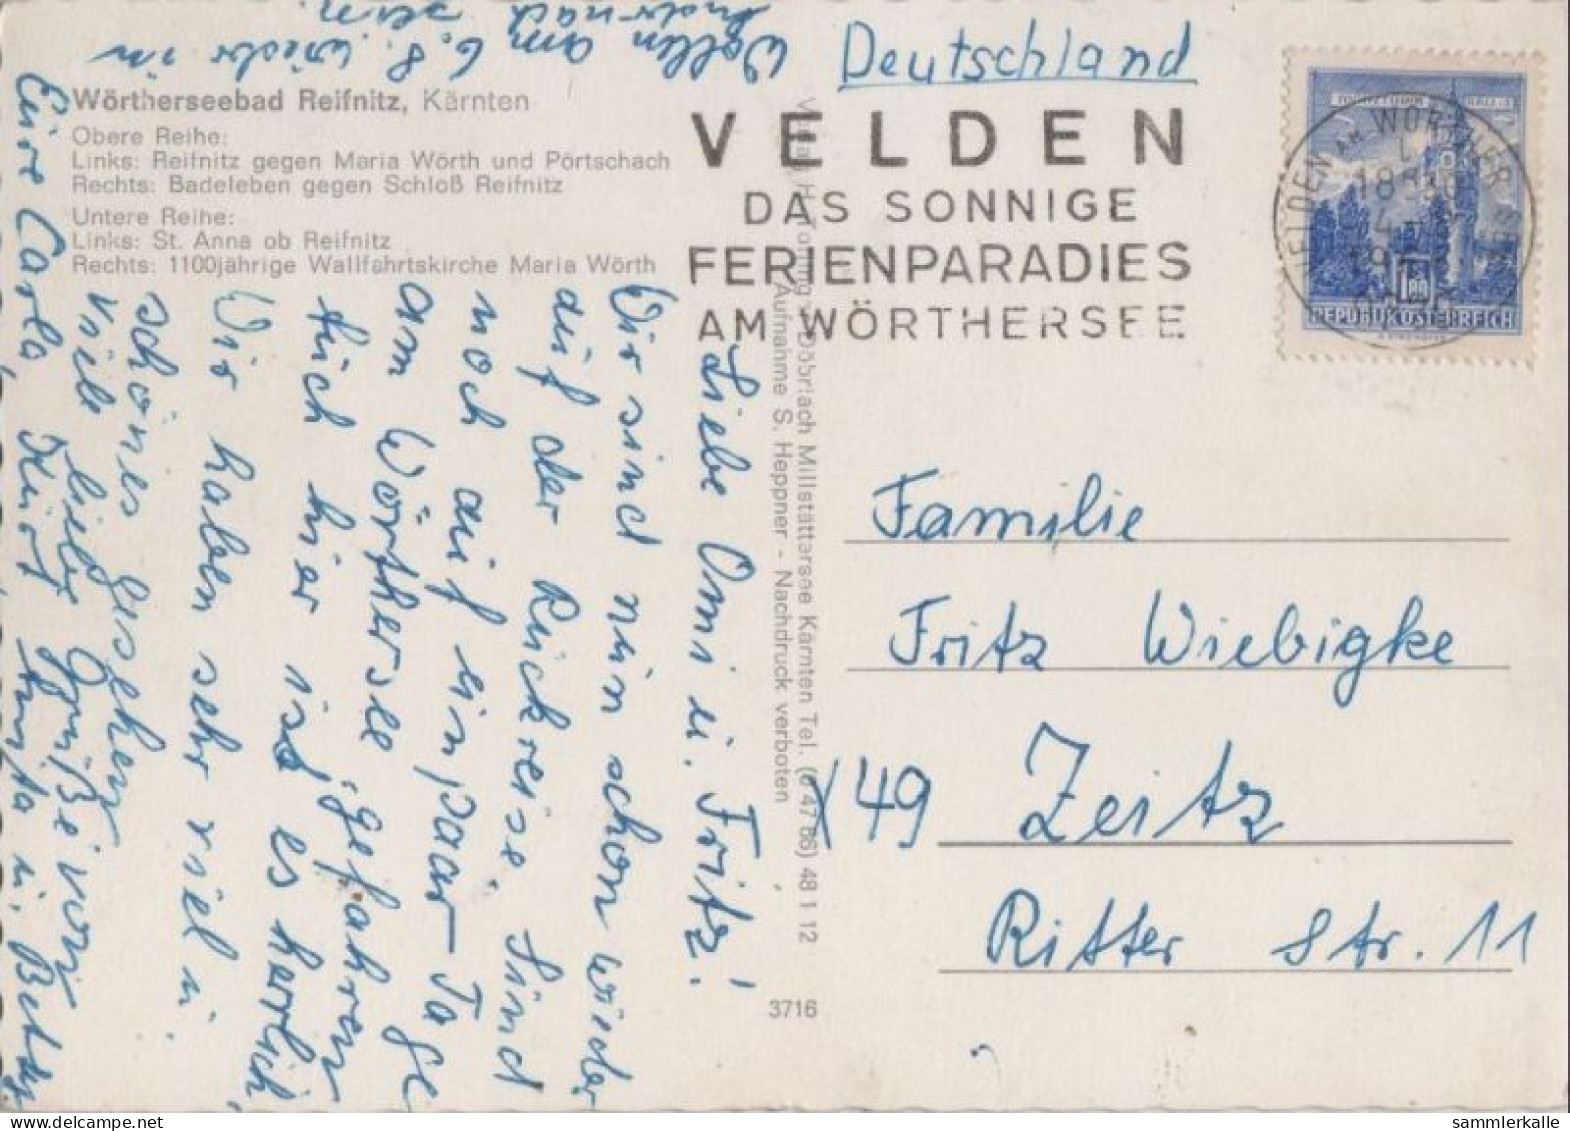 Wörtherseebad Reifnitz, Kärnten
Obere Reihe:
Links: Reifnitz gegen Maria Wörth und Pörtschach
Rechts: Badeleben gegen Schloß Reifnitz
Untere Reihe:
Links: St. Anna ob Reifnitz
Rechts: 1100jährige Wallfahrtskirche Maria Wörth
Liebe Omi u. Fritz!
Wir sind nun schon wieder
auf der Rückreise. Sind
noch auf ein paar Tage
am Wörthersee gefahren
hier ist es herrlich
Wir haben sehr viel u.
schönes gesehen
Viele liebe Grüße von
Eure Carla, Kurt
Wollen am 6.8. wieder in
Andernach sein.
Deutschland
VELDEN
DAS SONNIGE
FERIENPARADIES
AM WÖRTHERSEE
VELDEN AM WÖRTHER SEE
REPUBLIK ÖSTERREICH
Döbriach Millstättersee Kärnten Tel. (0 47 66) 48 1 12
Aufnahme S. Heppner - Nachdruck verboten
3716
Familie
Fritz Wiebigke
X 49 Zeitz
Ritter Str. 11
sammlerkalle